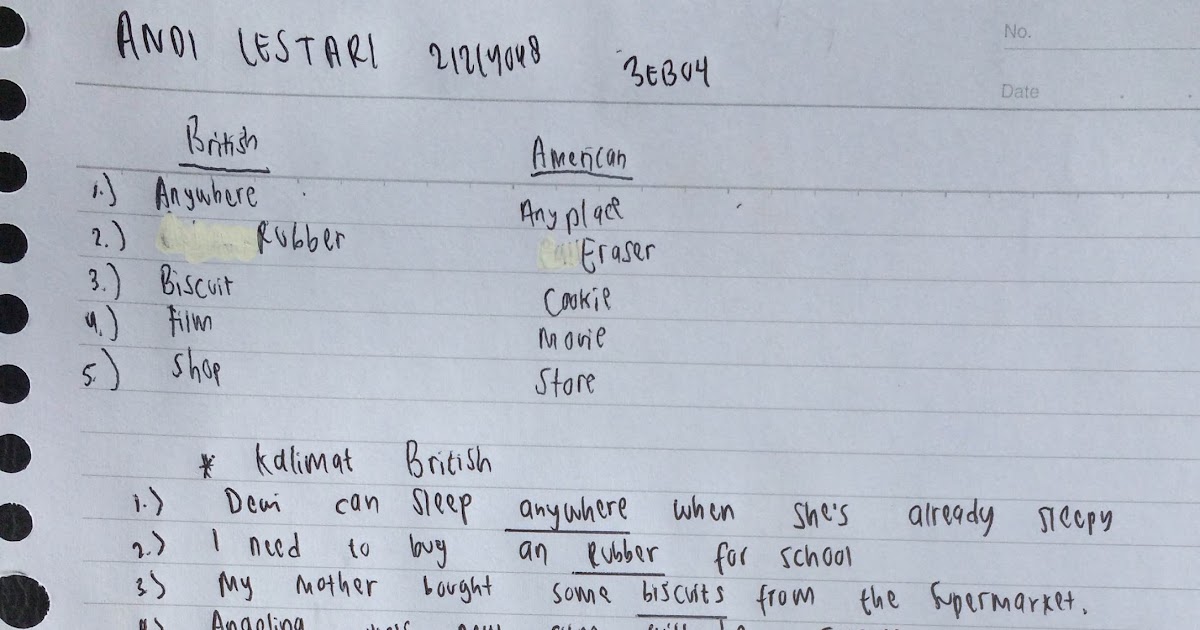 No.
ANDI LESTARI 21219048 3EB04
Date
British American
1.) Anywhere Anyplace
2.) Rubber Eraser
3.) Biscuit Cookie
4.) Film Movie
5.) Shop Store
* Kalimat British
1.) Dewi can sleep anywhere when she's already sleepy
2.) I need to buy an Rubber for school
3) My mother bought some biscuits from the Supermarket.
4.) Angelina